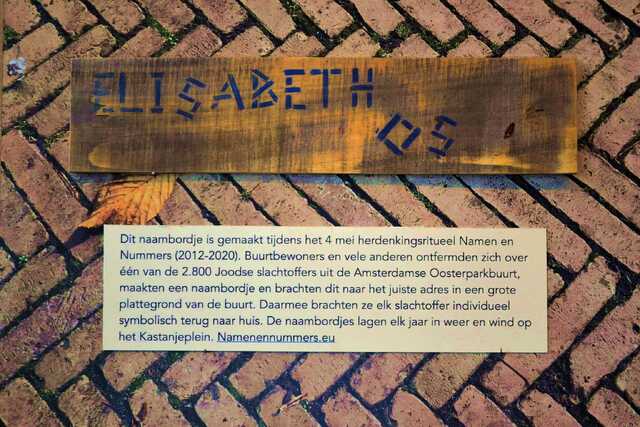 ELISABETH
OS
Dit naambordje is gemaakt tijdens het 4 mei herdenkingsritueel Namen en
Nummers (2012-2020). Buurtbewoners en vele anderen ontfermden zich over
één van de 2.800 Joodse slachtoffers uit de Amsterdamse Oosterparkbuurt,
maakten een naambordje en brachten dit naar het juiste adres in een grote
plattegrond van de buurt. Daarmee brachten ze elk slachtoffer individueel
symbolisch terug naar huis. De naambordjes lagen elk jaar in weer en wind op
het Kastanjeplein. Namenennummers.eu